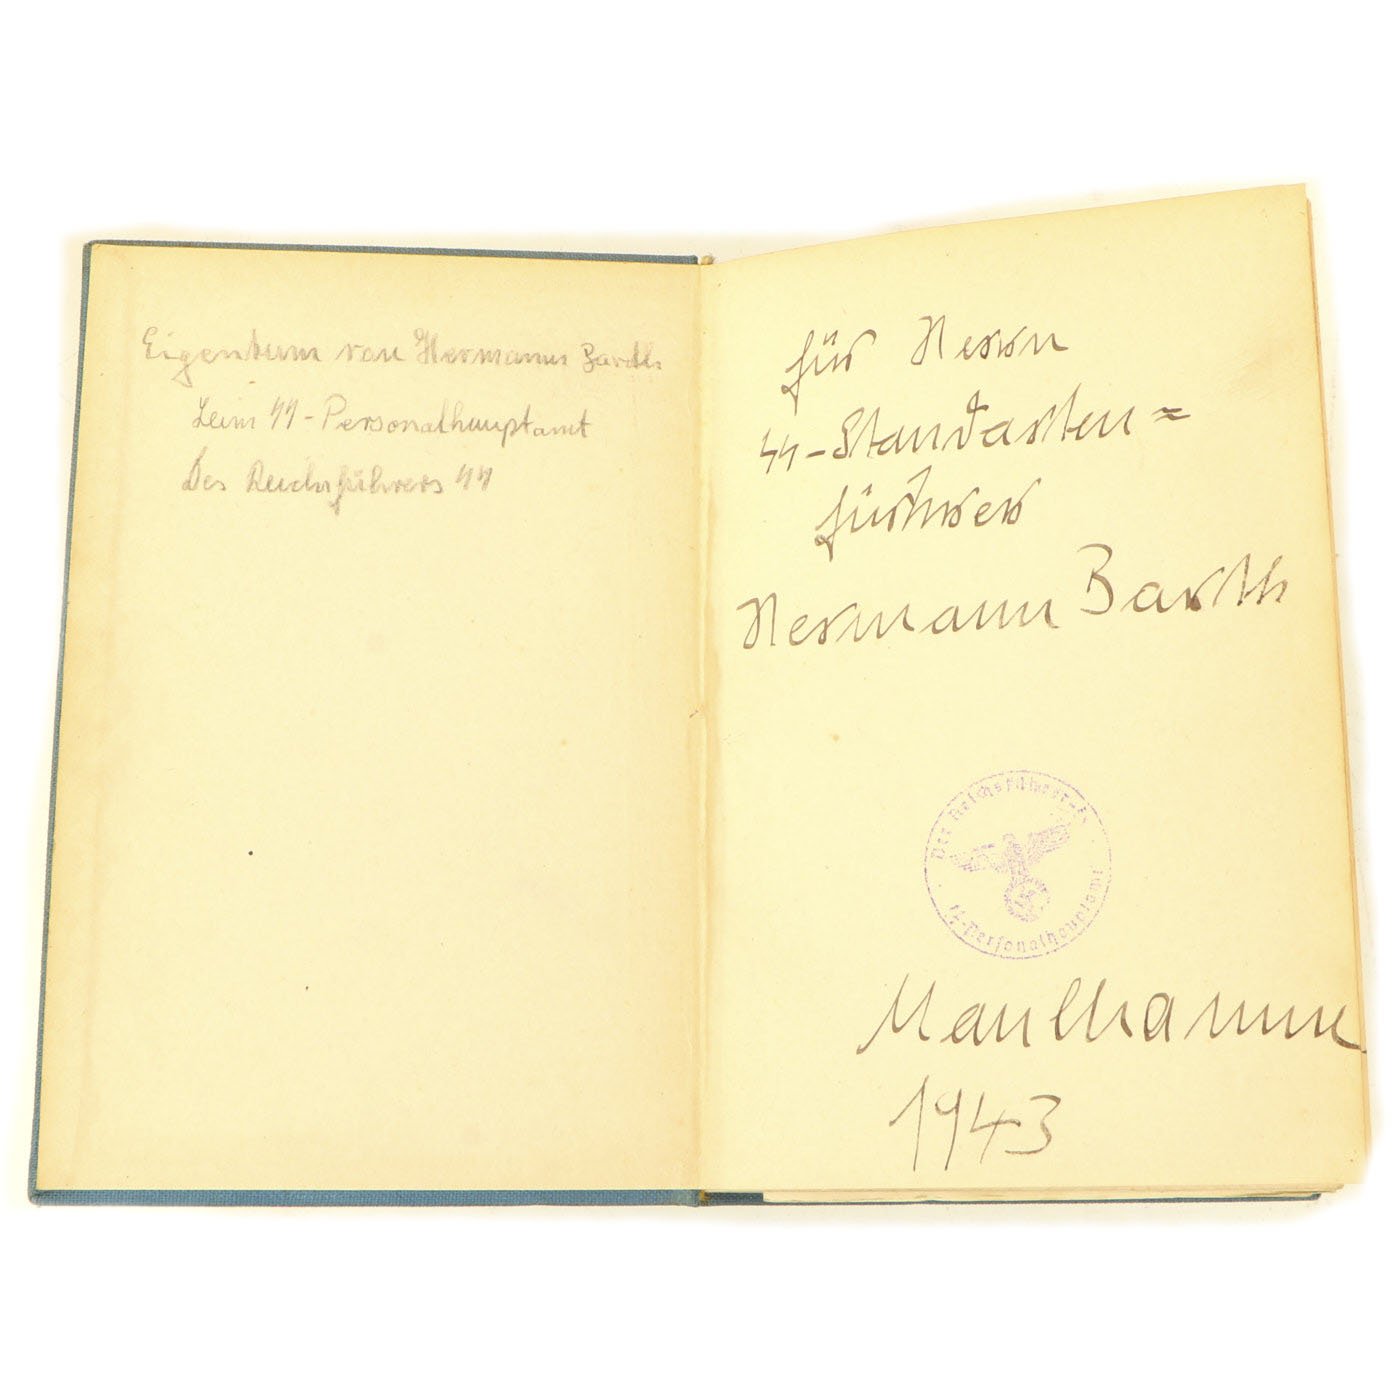 Eigentum von Hermann Barth
beim ᛋᛋ-Personalhauptamt
Des Reichsführers ᛋᛋ
für Herrn
ᛋᛋ-Standarten=
führer
Hermann Barth
Der Reichsführer-ᛋᛋ
ᛋᛋ-Personalhauptamt
1943